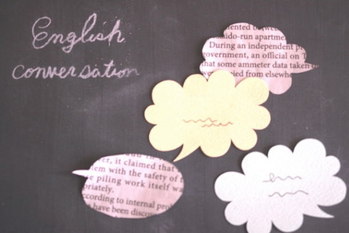 English
conversation
mented between
ido-run apartme
During an independent p
government, an official on T
that some ammeter data taken
ied from elsewhe
, it claimed that
em with the safety of
e piling work itself wa
priately.
ccording to internal pro
have been disco